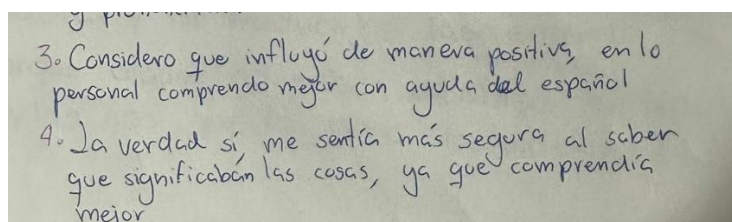 3. Considero que influyó de manera positiva, en lo
personal comprendo mejor con ayuda del español
4. La verdad sí, me sentía más segura al saber
que significaban las cosas, ya que comprendía
mejor